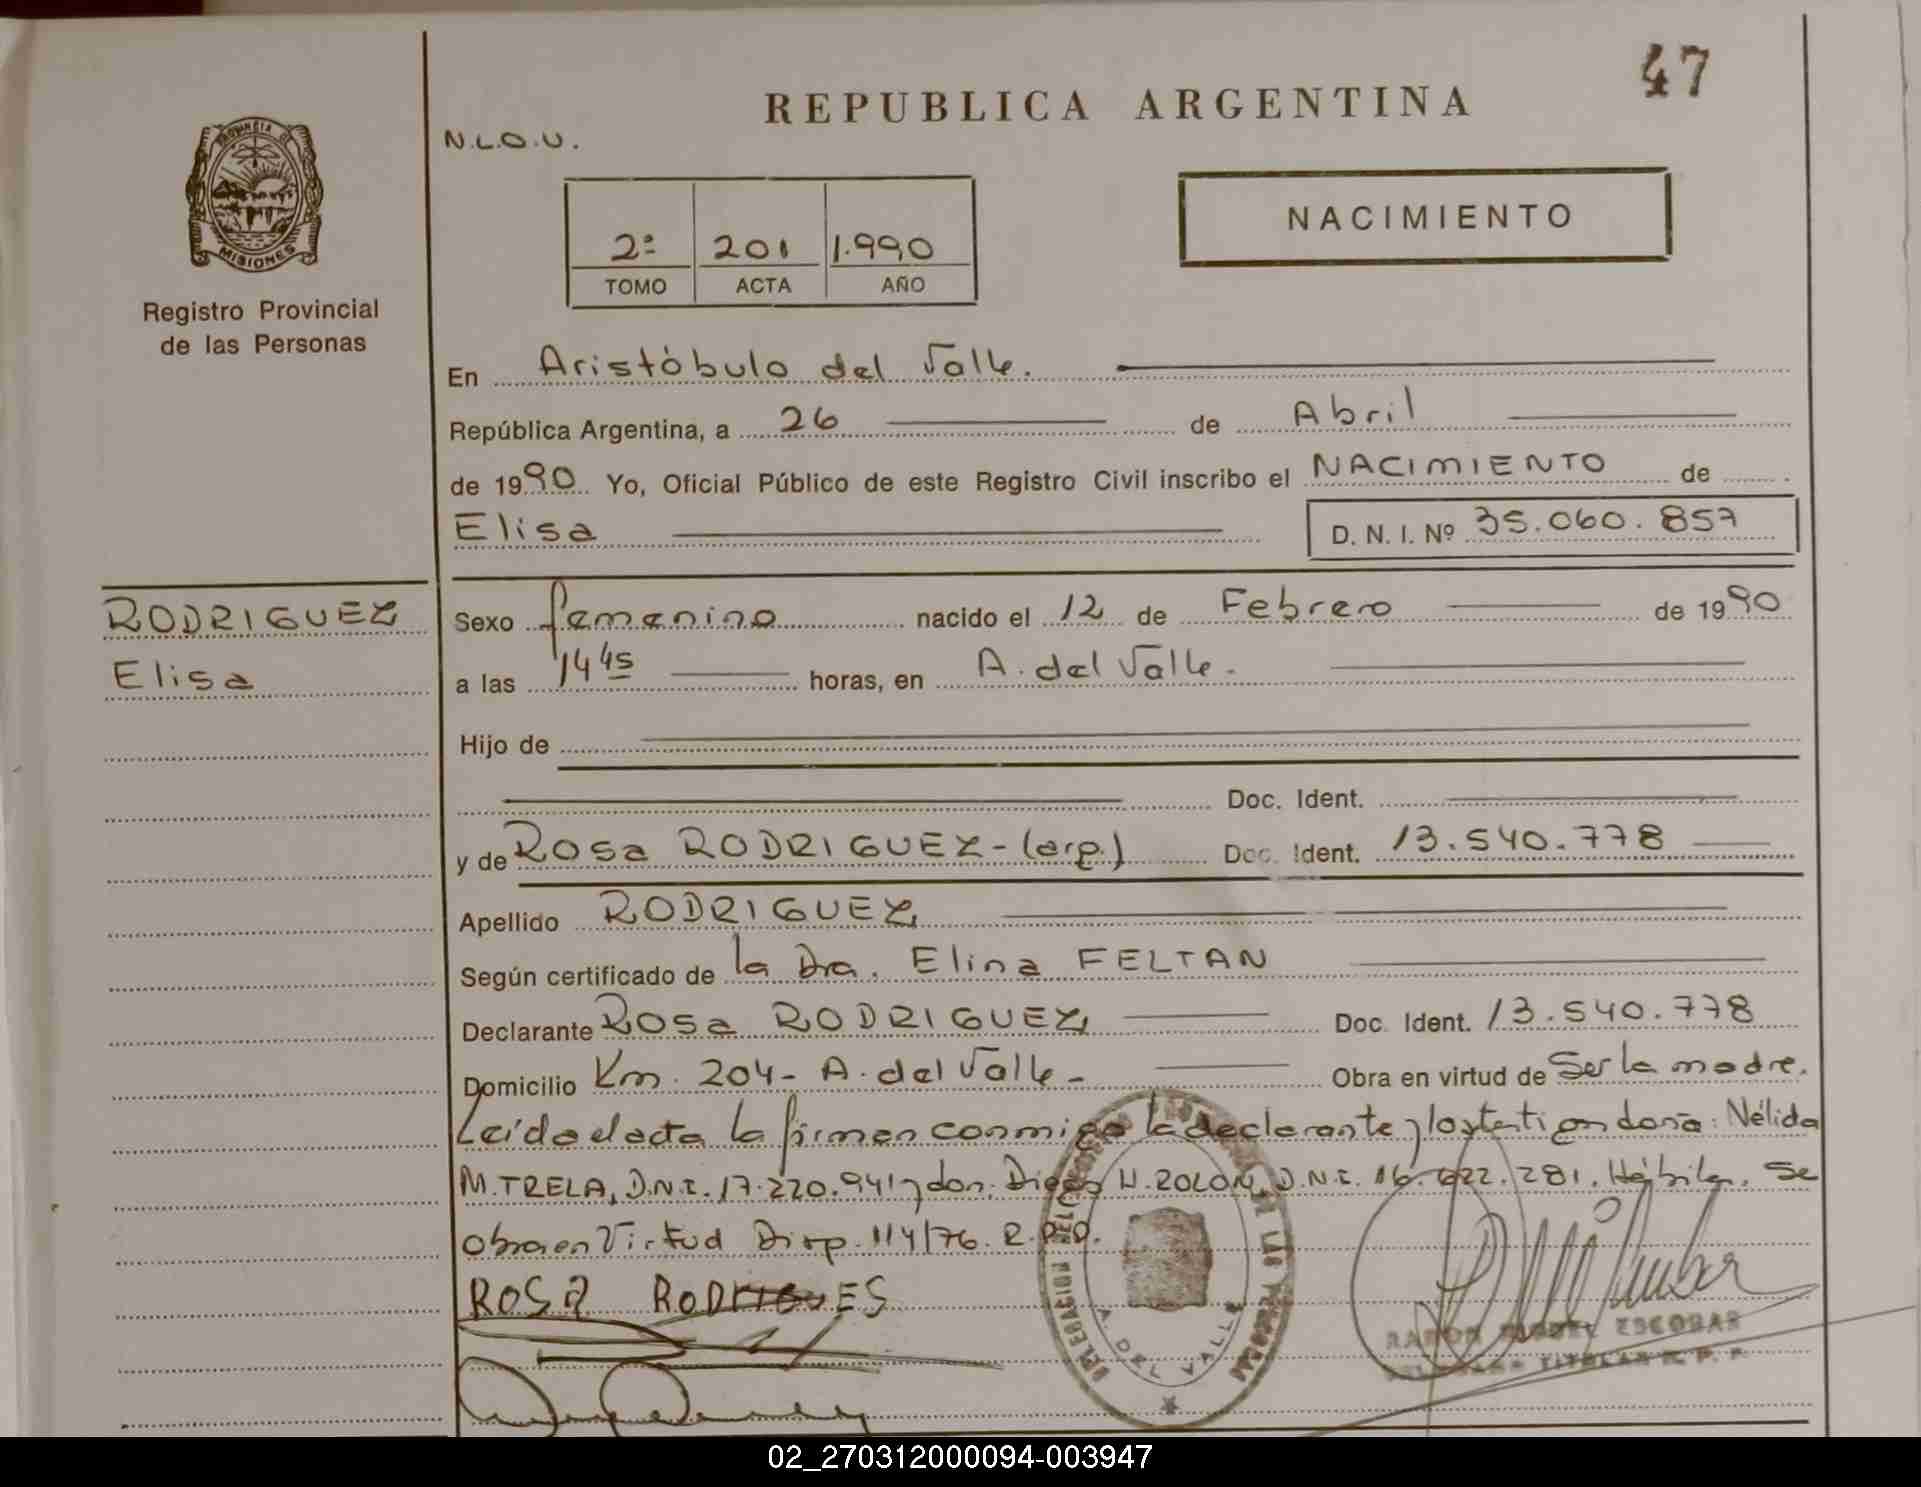 47
REPUBLICA ARGENTINA
N.L.O.U.
PROVINCIA DE
MISIONES
Registro Provincial
de las Personas
NACIMIENTO
2ª 201 1.990
TOMO ACTA AÑO
En Aristóbulo del Valle.
República Argentina, a 26 de Abril
de 1990 Yo, Oficial Público de este Registro Civil inscribo el NACIMIENTO de
Elisa D. N. I. Nº 35.060.857
RODRIGUEZ
Elisa
Sexo femenino nacido el 12 de Febrero de 1990
a las 14 45 horas, en A. del Valle.
Hijo de
Doc. Ident.
y de Rosa RODRIGUEZ-(arg.) Doc. Ident. 13.540.778
Apellido RODRIGUEZ
Según certificado de la Dra. Elina FELTAN
Declarante Rosa RODRIGUEZ Doc. Ident. 13.540.778
Domicilio Km. 204- A. del Valle- Obra en virtud de Ser la madre.
Leída el acta la firman conmigo la declarante y los testigos doña: Nélida
M. TRELA, D.N.I. 17.220.941 y don. Diego H. ROLON, D.N.I. 16.622.281. Hábiles. Se
obra en Virtud Disp. 114/76. R.P.P.
ROSA RODRIGUES
A. DEL VALLE
RAMON MIGUEL ESCOBAR
TITULAR R. P. P.
02_270312000094-003947